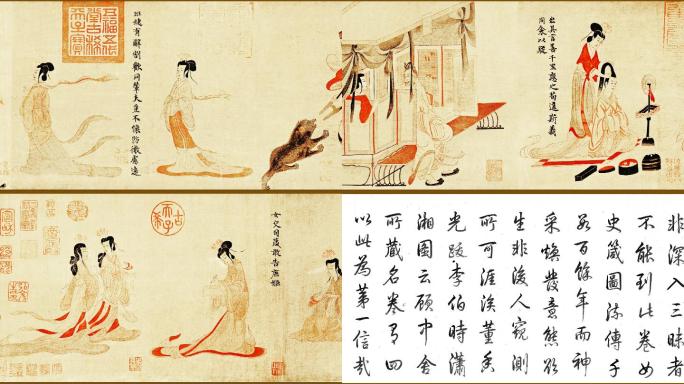 五福五代
堂古稀
天子寶
班婕有辭割歡同輦夫豈不懷防微慮遠
出其言善千里應之苟違斯義
同衾以疑
古希天子
女史司箴敢告庶姬
非深入三昧者
不能到此卷女
史箴圖流傳千
数百餘年而神
采煥發意態欲
生非後人窺測
所可涯涘董香
光跋李伯時瀟
湘圖云顧中舍
所藏名卷有四
以此為第一信哉